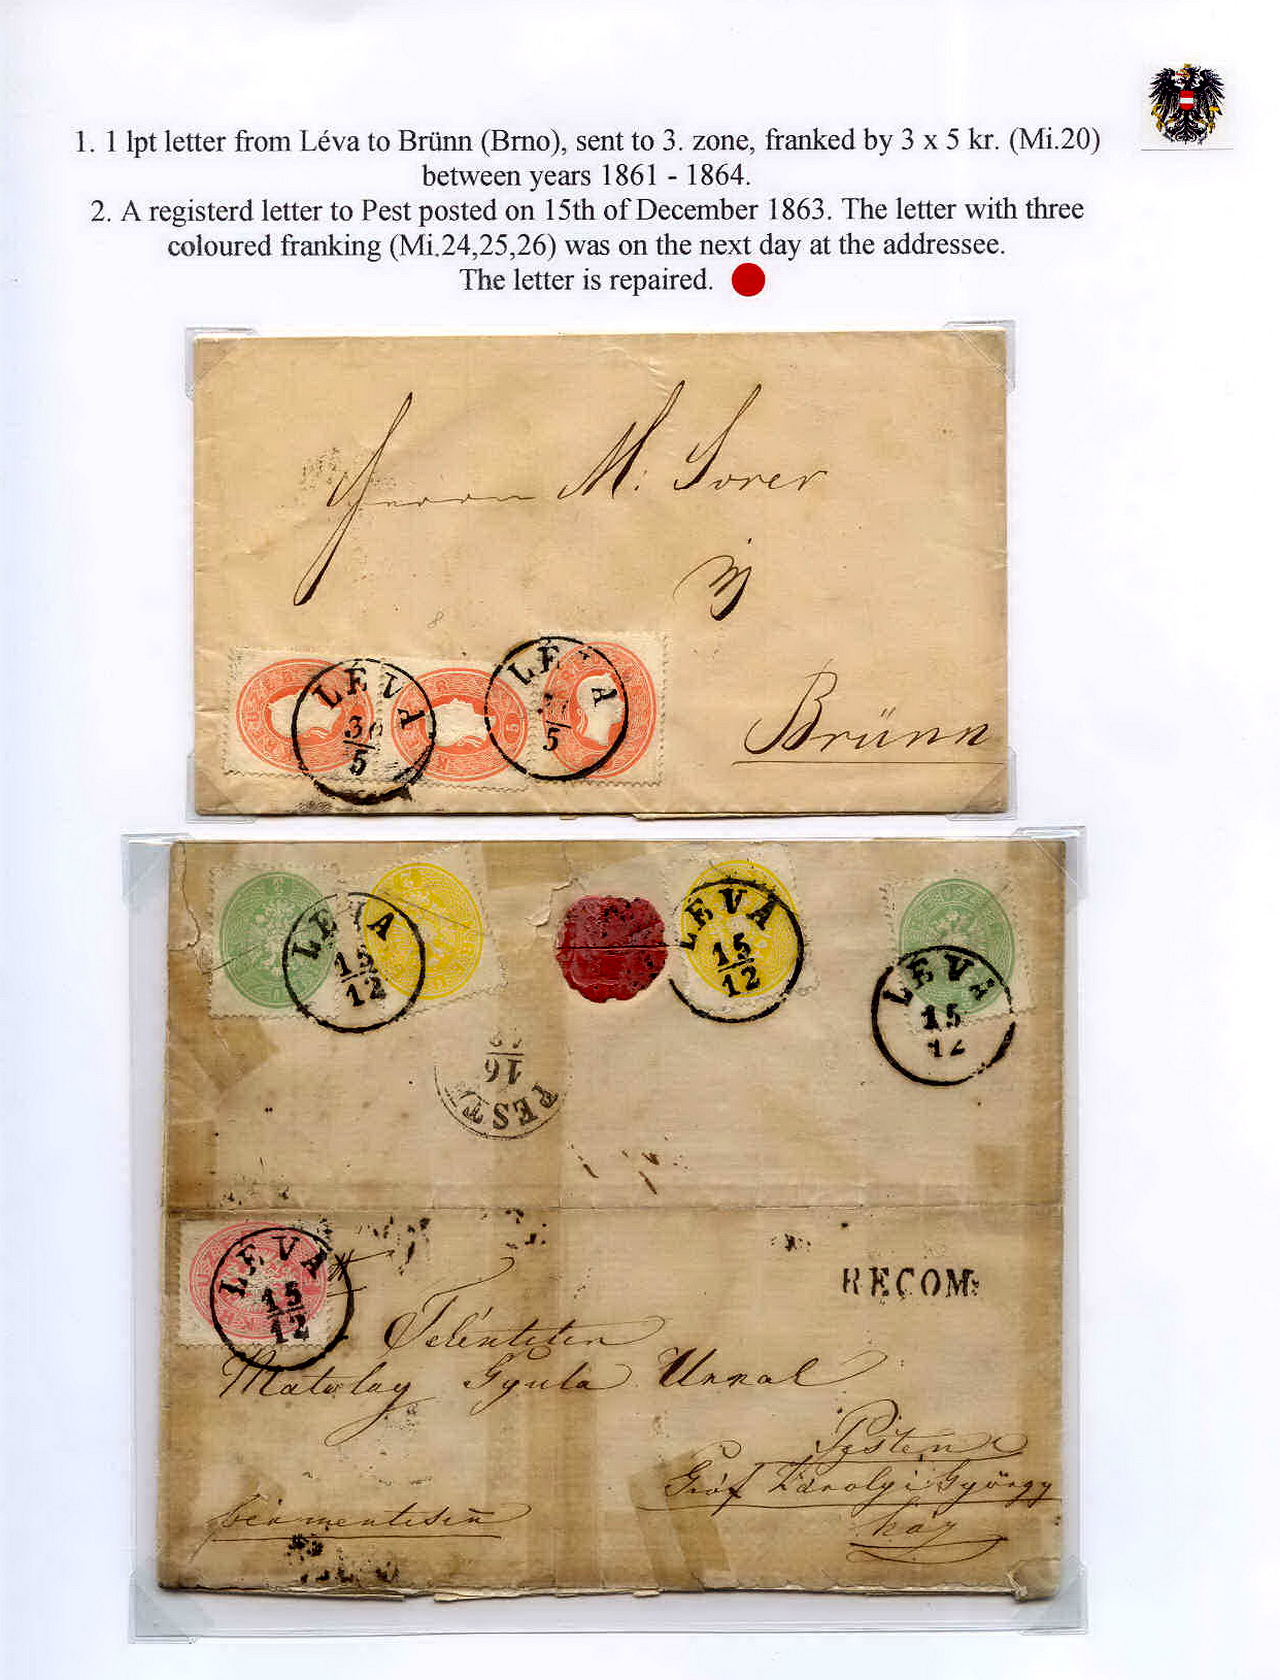 1. 1 lpt letter from Léva to Brünn (Brno), sent to 3. zone, franked by 3 x 5 kr. (Mi.20)
between years 1861 - 1864.
2. A registerd letter to Pest posted on 15th of December 1863. The letter with three
coloured franking (Mi.24,25,26) was on the next day at the addressee.
The letter is repaired.
Herrn M: Sorer
in
Brünn
LÉVA
30
5
LÉVA
5
LÉVA
15
12
LÉVA
15
12
LÉVA
15
12
PEST
16
12
LÉVA
15
12
RECOM:
Tekintetes
Matolay Gyula Urnak
Pesten
Gróf Károlyi György
ház
bérmentesen